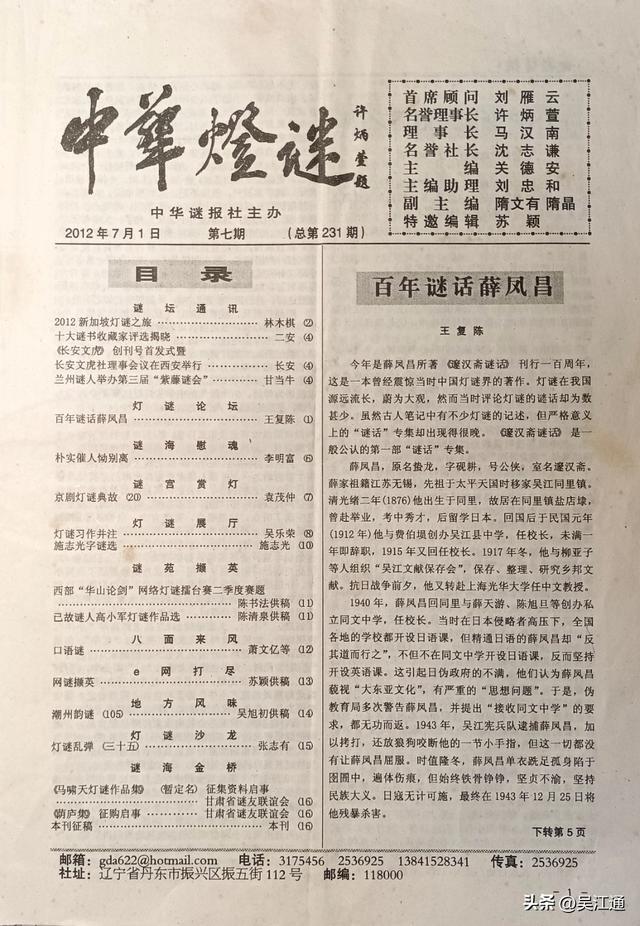 中华灯谜
许炳萱题
中华谜报社主办
2012年7月1日 第七期 (总第231期)
首席顾问 刘雁云
名誉理事长 许炳萱
理事长 马汉南
名誉社长 沈志谦
主编 关德安
主编助理 刘忠和
副主编 隋文有 隋晶
特邀编辑 苏颖
目录
谜坛通讯
2012新加坡灯谜之旅 …… 林木棋 ②
十大谜书收藏家评选揭晓 …… 二安 ④
《长安文虎》创刊号首发式暨
长安文虎社理事会议在西安举行 …… 长安 ④
兰州谜人举办第三届“紫藤谜会” …… 甘当牛 ④
灯谜论坛
百年谜话薛凤昌 …… 王复陈 ①
谜海慰魂
朴实催人恸别离 …… 李明富 ⑥
谜宫赏灯
京剧灯谜典故(20) …… 袁茂仲 ⑦
灯谜展厅
灯谜习作并注 …… 吴乐荣 ⑧
施志光字谜选 …… 施志光 ⑩
谜苑撷英
西部“华山论剑”网络灯谜擂台赛二季度赛题
…… 陈书法供稿 ⑪
已故谜人高小军灯谜作品选 …… 陈清泉供稿 ⑪
八面来风
口语谜 …… 萧文亿等 ⑫
e网打尽
网谜撷英 …… 苏颖供稿 ⑬
地方风味
潮州韵谜(105) …… 吴旭初供稿 ⑭
灯谜沙龙
灯谜乱弹(三十五) …… 张志有 ⑮
谜海金桥
《马啸天灯谜作品集》(暂定名)征集资料启事
…… 甘肃省谜友联谊会 ⑯
《萌庐集》征购启事 …… 甘肃省谜友联谊会 ⑯
本刊征稿 …… 本刊 ⑯
百年谜话薛凤昌
王复陈
今年是薛凤昌所著《邃汉斋谜话》刊行一百周年，
这是一本曾经震惊当时中国灯谜界的著作。灯谜在我国
源远流长，蔚为大观，然而当时评论灯谜的谜话却为数
甚少。虽然古人笔记中有不少灯谜的记述，但严格意义
上的“谜话”专集却出现得很晚。《邃汉斋谜话》是一
般公认的第一部“谜话”专集。
薛凤昌，原名蛰龙，字砚耕，号公侠，室名邃汉斋。
薛家祖籍江苏无锡，先祖于太平天国时移家吴江同里镇。
清光绪二年(1876)他出生于同里，故居在同里镇盐店埭，
曾赴举业，考中秀才，后留学日本。回国后于民国元年
(1912年)他与费伯埙创办吴江县中学，任校长，未满一
年即辞职，1915年又回任校长。1917年冬，他与柳亚子
等人组织“吴江文献保存会”，保存、整理、研究乡邦文
献。抗日战争前夕，他又转赴上海光华大学任中文教授。
1940年，薛凤昌回同里与薛天游、陈旭旦等创办私
立同文中学，任校长。当时在日本侵略者高压下，全国
各地的学校都开设日语课，但精通日语的薛凤昌却“反
其道而行之”，不但不在同文中学开设日语课，反而坚持
开设英语课。这引起日伪政府的不满，他们认为薛凤昌
藐视“大东亚文化”，有严重的“思想问题”。于是，伪
教育局多次警告薛凤昌，并提出“接收同文中学”的要
求，都无功而返。1943年，吴江宪兵队逮捕薛凤昌，加
以拷打，还放狼狗咬断他的一节小手指，但这一切都没
有让薛凤昌屈服。时值隆冬，薛凤昌单衣跣足孤身陷于
囹圄中，遍体伤痕，但始终铁骨铮铮，坚贞不渝，坚持
民族大义。日寇无计可施，最终在1943年12月25日将
他残暴杀害。
下转第5页
邮箱：gda622@hotmail.com 电话：3175456 2536925 13841528341 传真：2536925
社址：辽宁省丹东市振兴区振五街112号 邮编：118000
- 1 -
头条 @吴江通